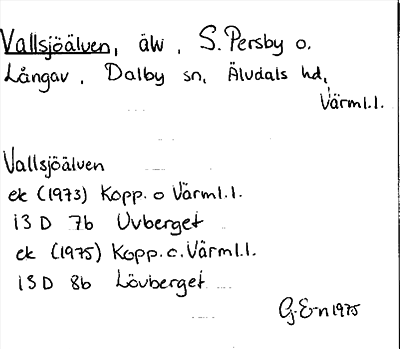 Vallsjöälven, älv, S. Persby o.
Långav, Dalby sn, Älvdals hd,
Värml.l.
Vallsjöälven
ek (1973) Kopp. o Värml.l.
13 D 7b Uvberget
ek (1975) Kopp. o. Värml.l.
13 D 8b Lövberget
G. E-n 1975